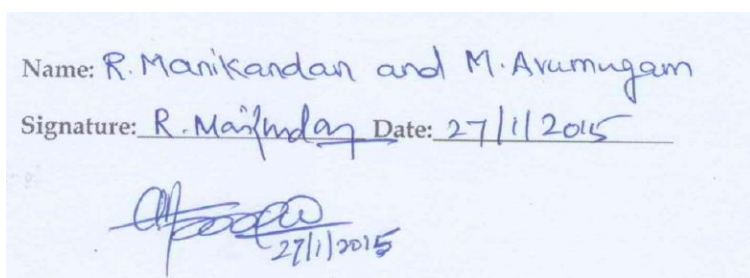 Name: R. Manikandan and M. Arumugam
Signature: R. Manikandan Date: 27/1/2015
27/1/2015